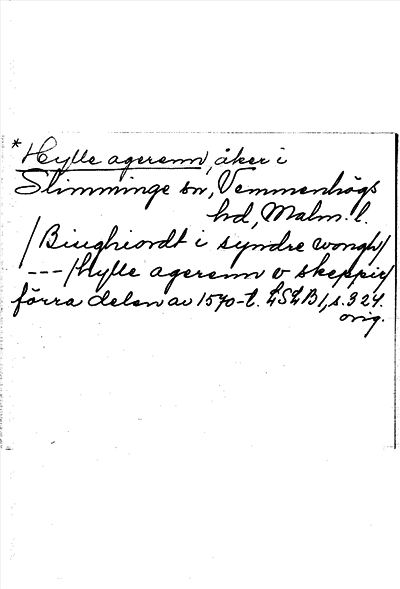 * Hylle agerenn, åker i
Slimminge sn, Vemmenhögs
hd, Malm. l.
/Biughiordt i syndre wongh/
---/Hylle agerenn v skeppir/
förra delen av 1570-t. LSLB1, s. 324.
orig.